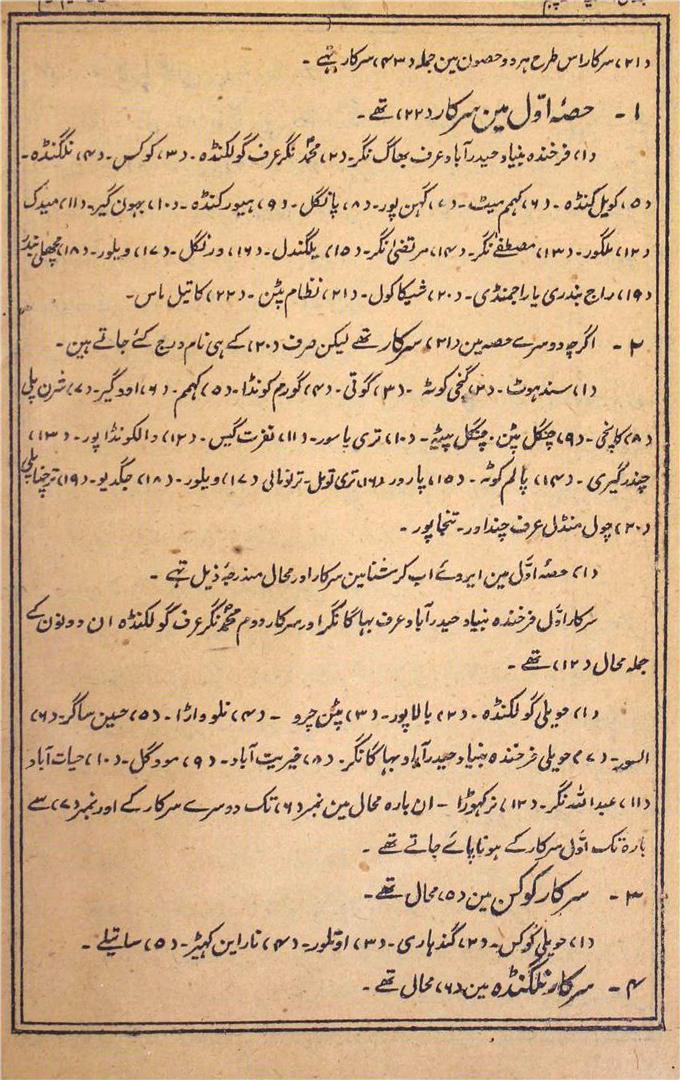 (۲۱) سرکار اس طرح ہر دو حصون مین جملہ (۴۳) سرکار تہے ۔
۱ ۔ حصۂ اوّل مین سرکار (۲۲) تھے ۔
(۱) فرخندہ بنیاد حیدرآباد عرف بھاگ نگر ۔ (۲) محمد نگر عرف گولکنڈہ ۔ (۳) کوکس ۔ (۴) نلگنڈہ ۔
(۵) کویل کنڈہ ۔ (۶) کہم میٹ ۔ (۷) گہن پور ۔ (۸) پانگل ۔ (۹) ہیور کنڈہ ۔ (۱۰) بہون گیر ۔ (۱۱) میدک
(۱۲) ملگور ۔ (۱۳) مصطفےٰ نگر ۔ (۱۴) مرتضیٰ نگر ۔ (۱۵) یلگندل ۔ (۱۶) ورنگل ۔ (۱۷) ویلور ۔ (۱۸) مچھلی بندر
(۱۹) راج بندری یا راجمنڈی ۔ (۲۰) شیکا کول ۔ (۲۱) نظام پٹن ۔ (۲۲) کاتیل ماس ۔
۲ ۔ اگرچہ دوسرے حصہ مین (۲۱) سرکار تھے لیکن صرف (۲۰) کے ہی نام درج کئے جاتے ہین ۔
(۱) سندہوٹ ۔ (۲) گنجی کوٹہ ۔ (۳) گوتی ۔ (۴) گورم کونڈا ۔ (۵) کہم ۔ (۶) اودگیر ۔ (۷) شرن پلی
(۸) کاپنچی ۔ (۹) چنگل پٹن ۔ چنگل پیٹہ ۔ (۱۰) تری پاسور ۔ (۱۱) نفرت گیس ۔ (۱۲) والکونڈا پور ۔ (۱۳)
چندر گیری ۔ (۱۴) پالم کوٹہ ۔ (۱۵) پارور (۱۶) تری نویل ۔ ترنومالی (۱۷) ویلور ۔ (۱۸) جگدیو ۔ (۱۹) ترچناپلی
(۲۰) چول منڈل عرف چنداور ۔ تنجاپور ۔
(۱) حصۂ اوّل مین ایروئے اب کرشنا مین سرکار اور محال مندرجۂ ذیل تہے ۔
سرکار اوّل فرخندہ بنیاد حیدرآباد عرف بہاگا نگر اور سرکار دوم محمد نگر عرف گولکنڈہ ان دونون کے
جملہ محال (۱۲) تھے ۔
(۱) حویلی گولکنڈہ ۔ (۲) بالاپور ۔ (۳) پٹن چرو ۔ (۴) نلو واڑا ۔ (۵) حسین ساگر ۔ (۶)
السور ۔ (۷) حویلی فرخندہ بنیاد حیدرآباد بہاگا نگر ۔ (۸) خیریت آباد ۔ (۹) مودگل ۔ (۱۰) حیات آباد
(۱۱) عبداللہ نگر ۔ (۱۲) نرکہوڑا ۔ ان بارہ محال مین نمبر (۶) تک دوسرے سرکار کے اور نمبر (۷) سے
بارہ تک اوّل سرکار کے ہونا پائے جاتے تھے ۔
۳ ۔ سرکار کوکس مین (۵) محال تھے ۔
(۱) حویلی کوکس ۔ (۲) گندہاری ۔ (۳) اوتلور ۔ (۴) نارائن کہیڑ ۔ (۵) ساتیلے ۔
۴ ۔ سرکار نلگنڈہ مین (۶) محال تھے ۔